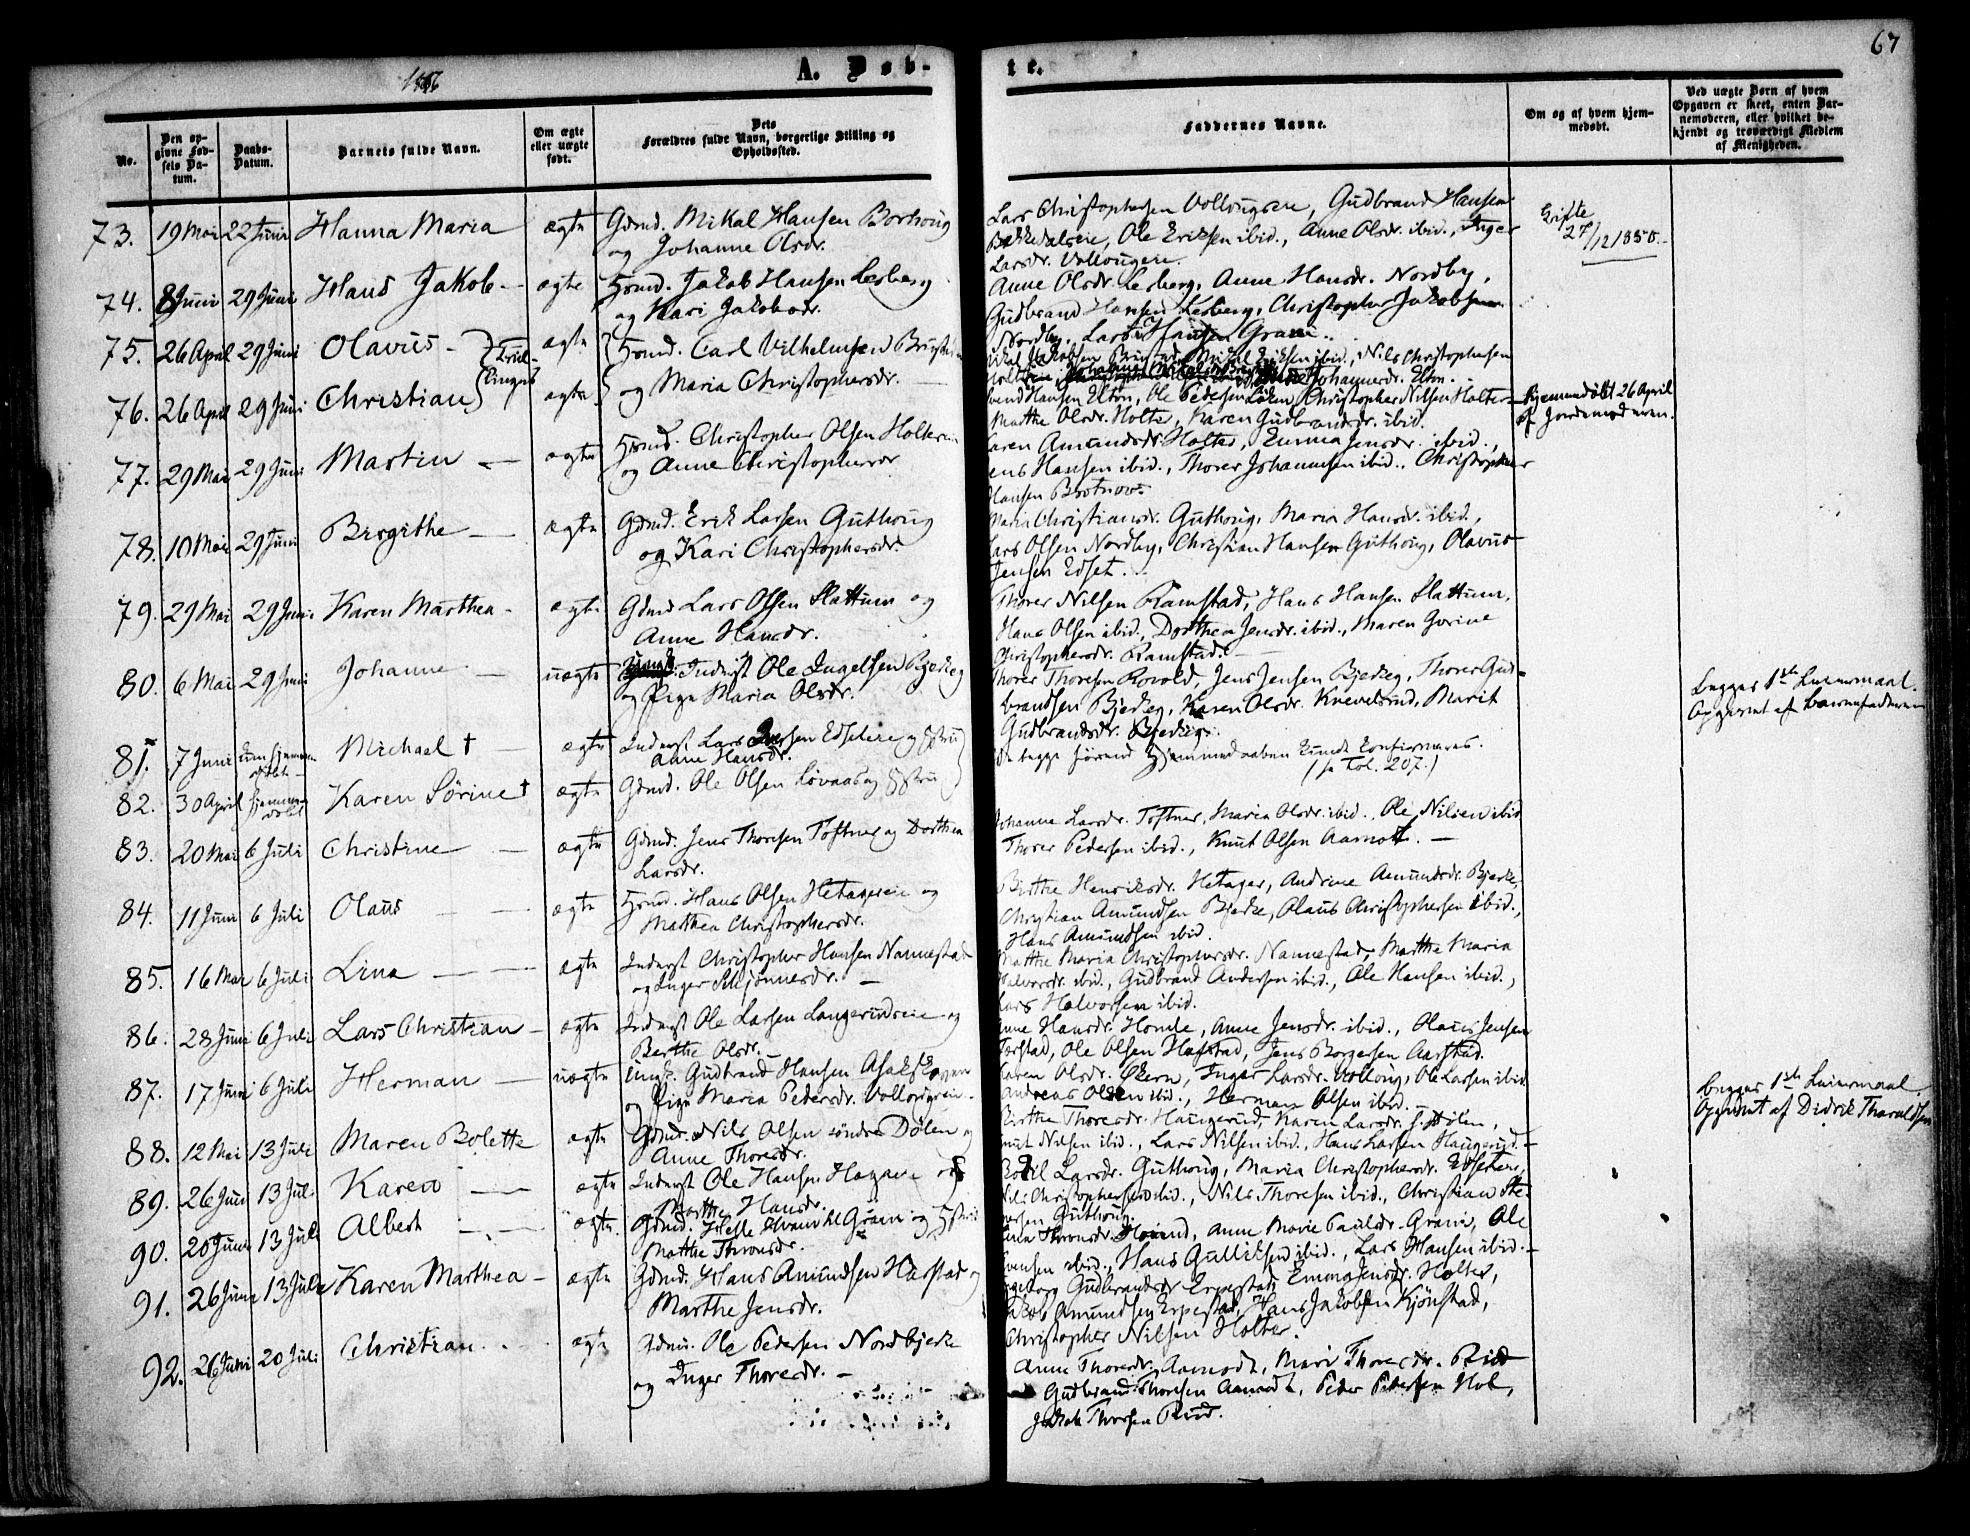 67
1856
A. Døb-
te.
No.
Den op-
givne Fød-
sels Da-
tum.
Daabs-
Datum.
Barnets fulde Navn.
Om ægte
eller uægte
født.
Dets
Forældres fulde Navn, borgerlige Stilling og
Opholdssted.
Faddernes Navne.
Om og af hvem hjem-
medøbt.
Ved uægte Børn af hvem
Opgaven er skeet, enten Bar-
nemoderen, eller hvilket be-
kjendt og troværdigt Medlem
af Menigheden.
73. 19 Mai 22 Juni Hanna Maria ægte Gdmd. Mikal Hansen
og Johanne Olsdr.
Lars Christophersen Vollougseie, Gudbrand Hansen
Bekkedalseie, Ole Eriksen ibid., Anne Olsdr. ibid., Inger
Larsdr. Vollougeie.
Gifte
27/12 1850.
74. 8 Juni 29 Juni Hans Jakob ægte Hsmd. Jakob Hansen Lesberg
og Kari Jakobsdr.
Anne Olsdr. Lesberg, Anne Hansdr. Nordby,
Gudbrand Hansen Lesberg, Christopher Jakobsen
Nordby, Lars Hansen Gram.
75. 26 April 29 Juni Olavus - Tvil- ægte Hsmd. Carl Vilhelmsen
76. 26 April 29 Juni Christian linger ægte og Maria Christophersdr.
Mikal Eriksen ibid., Nils Christophersen
Johannesdr. Elton.
Hansen Elton, Ole Pedersen Løken, Christopher Nilsen Holter
Marthe Olsdr. Holter, Karen Gudbrandsdr. ibid.
Hjemmedøbt 26 April
af Jordemoderen.
77. 29 Mai 29 Juni Martin ægte Hsmd. Christopher Olsen Holtereie
og Anne Christophersdr
Karen Amundsdr. Holter, Emma Jensdr. ibid.,
Jens Hansen ibid., Thorer Johannesen ibid., Christopher
Hansen Brotnov.
78. 10 Mai 29 Juni Birgithe ægte Gdmd. Erik Larsen Guthoug
og Kari Christophersdr.
Maria Christiansdr. Guthoug, Maria Hansdr. ibid.,
Lars Olsen Nordby, Christian Hansen Guthoug, Olavus
Jensen Edset.
79. 29 Mai 29 Juni Karen Marthea ægte Gdmd Lars Olsen Slattum og
Anne Hansdr.
Thorer Nilsen Ramstad, Hans Hansen Slattum,
Hans Olsen ibid., Dorthea Jensdr. ibid., Maren Gurine
Christophersdr. Ramstad.
80. 6 Mai 29 Juni Johanne uægte Inderst Ole Ingelsen Bjerkeg
og Pige Maria Olsdr.
Thorer Thoresen Rovold, Jens Jensen Bjerkeg, Thorer Gud-
brandsen Bjerkeg, Karen Olsdr. Knevelsrud, Marit
Gudbrandsdr. Bjerkeg.
begges 1ste Leiermaal.
Opgivet af barnefaderen
81. 7 Juni Michael † ægte Inderst Lars Edseteie og Hstru
Anne Hansdr.
82. 30 April Karen Sørine † ægte Gdmd. Ole Olsen Løvaas og Hstru
begge hjemmedaaben Konfirmeres.
(se Fol. 207.)
83. 20 Mai 6 Juli Christine ægte Gdmd. Jens Thoresen Toftner og Dorthea
Larsdr.
Johanne Larsdr. Toftner, Maria Olsdr. ibid., Ole Nilsen ibid
Thorer Pedersen ibid., Knut Olsen Aamot.
84. 11 Juni 6 Juli Olaus ægte Hsmd. Hans Olsen Hetagereie og
Marthea Christophersdr.
Birthe Henriksdr. Hetager, Andrine Amundsdr. Bjerke,
Christian Amundsen Bjerke, Olaus Christophersen ibid.,
Hans Amundsen ibid.
85. 16 Mai 6 Juli Lina ægte Inderst Christopher Hansen Nannestad
og Inger Skjønnesdr.
Marthe Maria Christophersdr. Nannestad, Marthe Maria
Halvorsdr. ibid., Gudbrand Andersen ibid., Ole Hansen ibid.,
Lars Halvorsen ibid.
86. 28 Juni 6 Juli Lars Christian ægte Inderst Ole Larsen Langerudseie og
Berthe Olsdr.
Anne Hansdr. Homle, Anne Jensdr. ibid., Olaus Jensen
Tørstad, Ole Olsen Harstad, Jens Borgersen Aarstad.
87. 17 Juni 6 Juli Herman uægte Ungk. Gudbrand Hansen
og Pige Maria Pedersdr. Vollougseie
Karen Olsdr. Økern, Inger Larsdr. Vollong, Ole Larsen ibid
Andreas Olsen ibid., Herman Olsen ibid.
begges 1ste Leiermaal
Opgivet af Didrik Tharaldsen
88. 12 Mai 13 Juli Maren Bolette ægte Gdmd. Nils Olsen søndre Dølen og
Anne Thoresdr.
Birthe Thoresdr. Haugerud, Karen Larsdr. S. Dølen,
Knut Nilsen ibid., Lars Nilsen ibid., Hans Larsen Haugerud.
89. 26 Juni 13 Juli Karen ægte Inderst Ole Hansen og
Marthe Hansdr.
Larsdr. Guthoug, Maria Christophersdr. Edseteie,
Nils Christophersen ibid., Nils Thoresen ibid., Christian
Guthoug.
90. 20 Juni 13 Juli Albert ægte Gdmd. Gram og Hstru
Marthe Thronsdr.
Thronsdr. Anne Marie Paulsdr. Gram, Ole
Svensen ibid., Hans Gulliksen ibid., Lars Hansen ibid.
91. 26 Juni 13 Juli Karen Marthea ægte Gdmd. Hans Amundsen Harstad og
Marthe Jensdr.
Ingeborg Gudbrandsdr. Erpestad, Emma Jensdr. Holter,
Jakob Amundsen Erpestad, Hans Jakobsen Kjønstad,
Christopher Nilsen Holter.
92. 26 Juni 20 Juli Christian ægte Gdmd. Ole Pedersen Nordbjerke
og Inger Thoresdr.
Anne Thoresdr. Aamodt, Mari Thoresdr. Rud
Gudbrand Thoresen Aamodt, Peder Pedersen Hol,
Jakob Thoresen Rud.